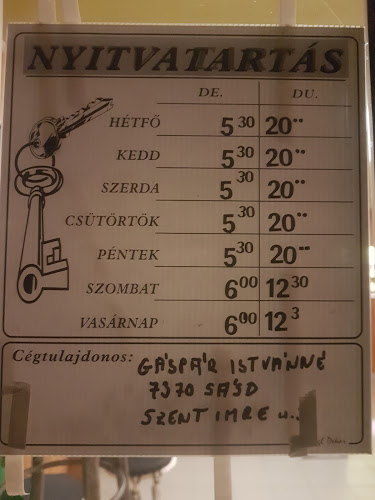 NYITVATARTÁS
DE. DU.
HÉTFŐ 5 30 20 --
KEDD 5 30 20 --
SZERDA 5 30 20 --
CSÜTÖRTÖK 5 30 20 --
PÉNTEK 5 30 20 --
SZOMBAT 6 00 12 30
VASÁRNAP 6 00 12 3
Cégtulajdonos: GÁSPÁR ISTVÁNNÉ
7370 SÁSD
SZENT IMRE u.